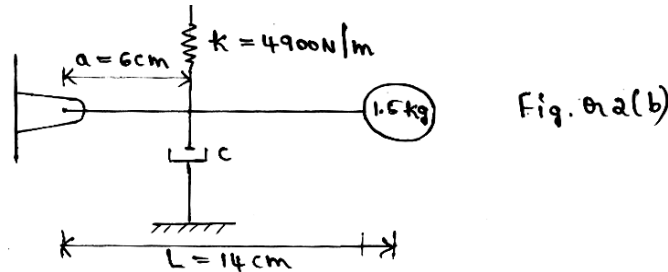 k = 4900N/m
a = 6cm
1.5kg
Fig. Q2(b)
C
L = 14cm